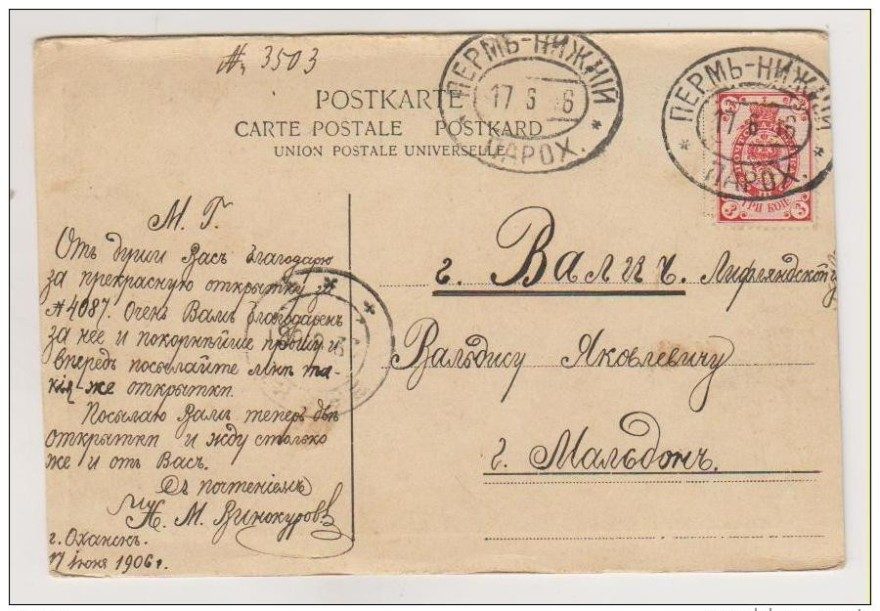 № 3503
POSTKARTE
CARTE POSTALE POSTKARD
UNION POSTALE UNIVERSELLE
ПЕРМЬ-НИЖНІЙ
17 6 06
ПАРОХ.
ПЕРМЬ-НИЖНІЙ
17 6
ПАРОХ.
3 3
ТРИ КОП
М. Г.
Отъ души Васъ благодарю
за прекрасную открытку за
№ 4087. Очень Вамъ благодаренъ
за нее и покорнѣйше прошу и
впередъ посылайте мнѣ та-
кія же открытки.
Посылаю Вамъ теперь двѣ
открытки и жду столько
же и отъ Васъ.
Съ почтеніемъ
Н. М. Винокуровъ
г. Оханскъ.
17 іюня 1906 г.
г. Валкъ. Лифляндской г.
Вальдису Яковлевичу
г. Мальдонъ.